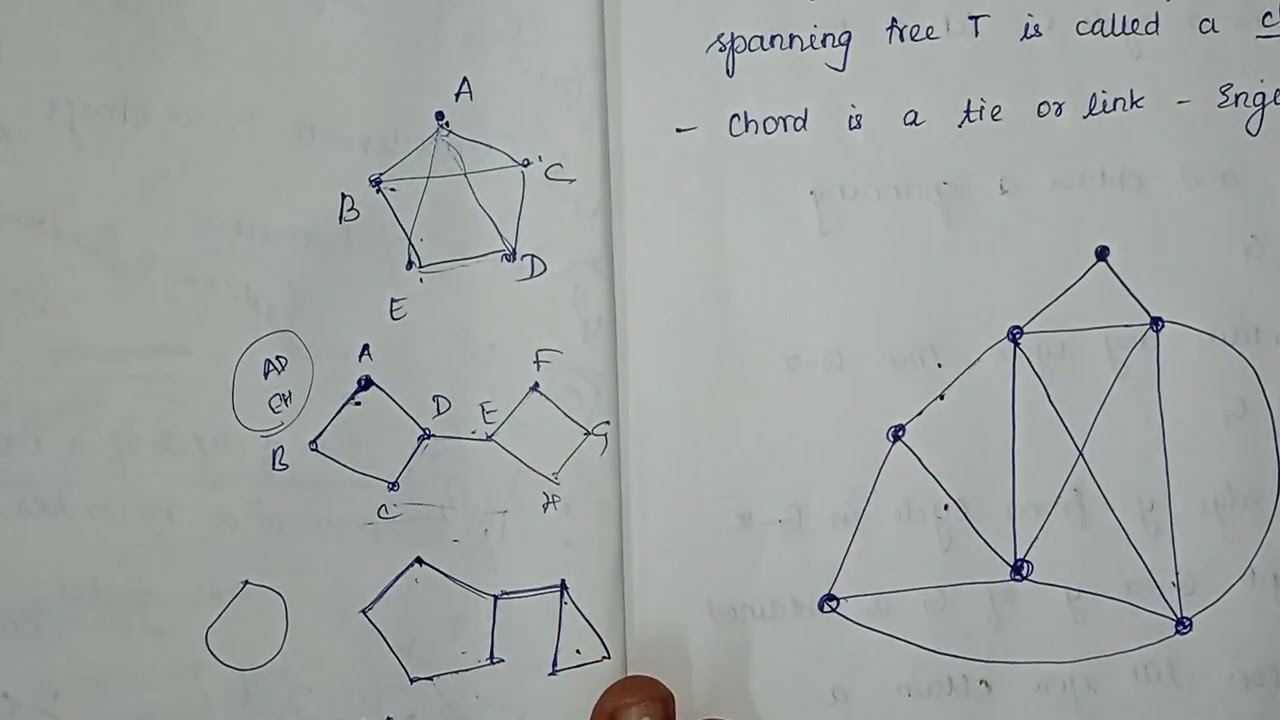 spanning tree T is called a c
- Chord is a tie or link - Enge
A
B
C
D
E
AD
CH
A
B
C
D
E
F
G
H